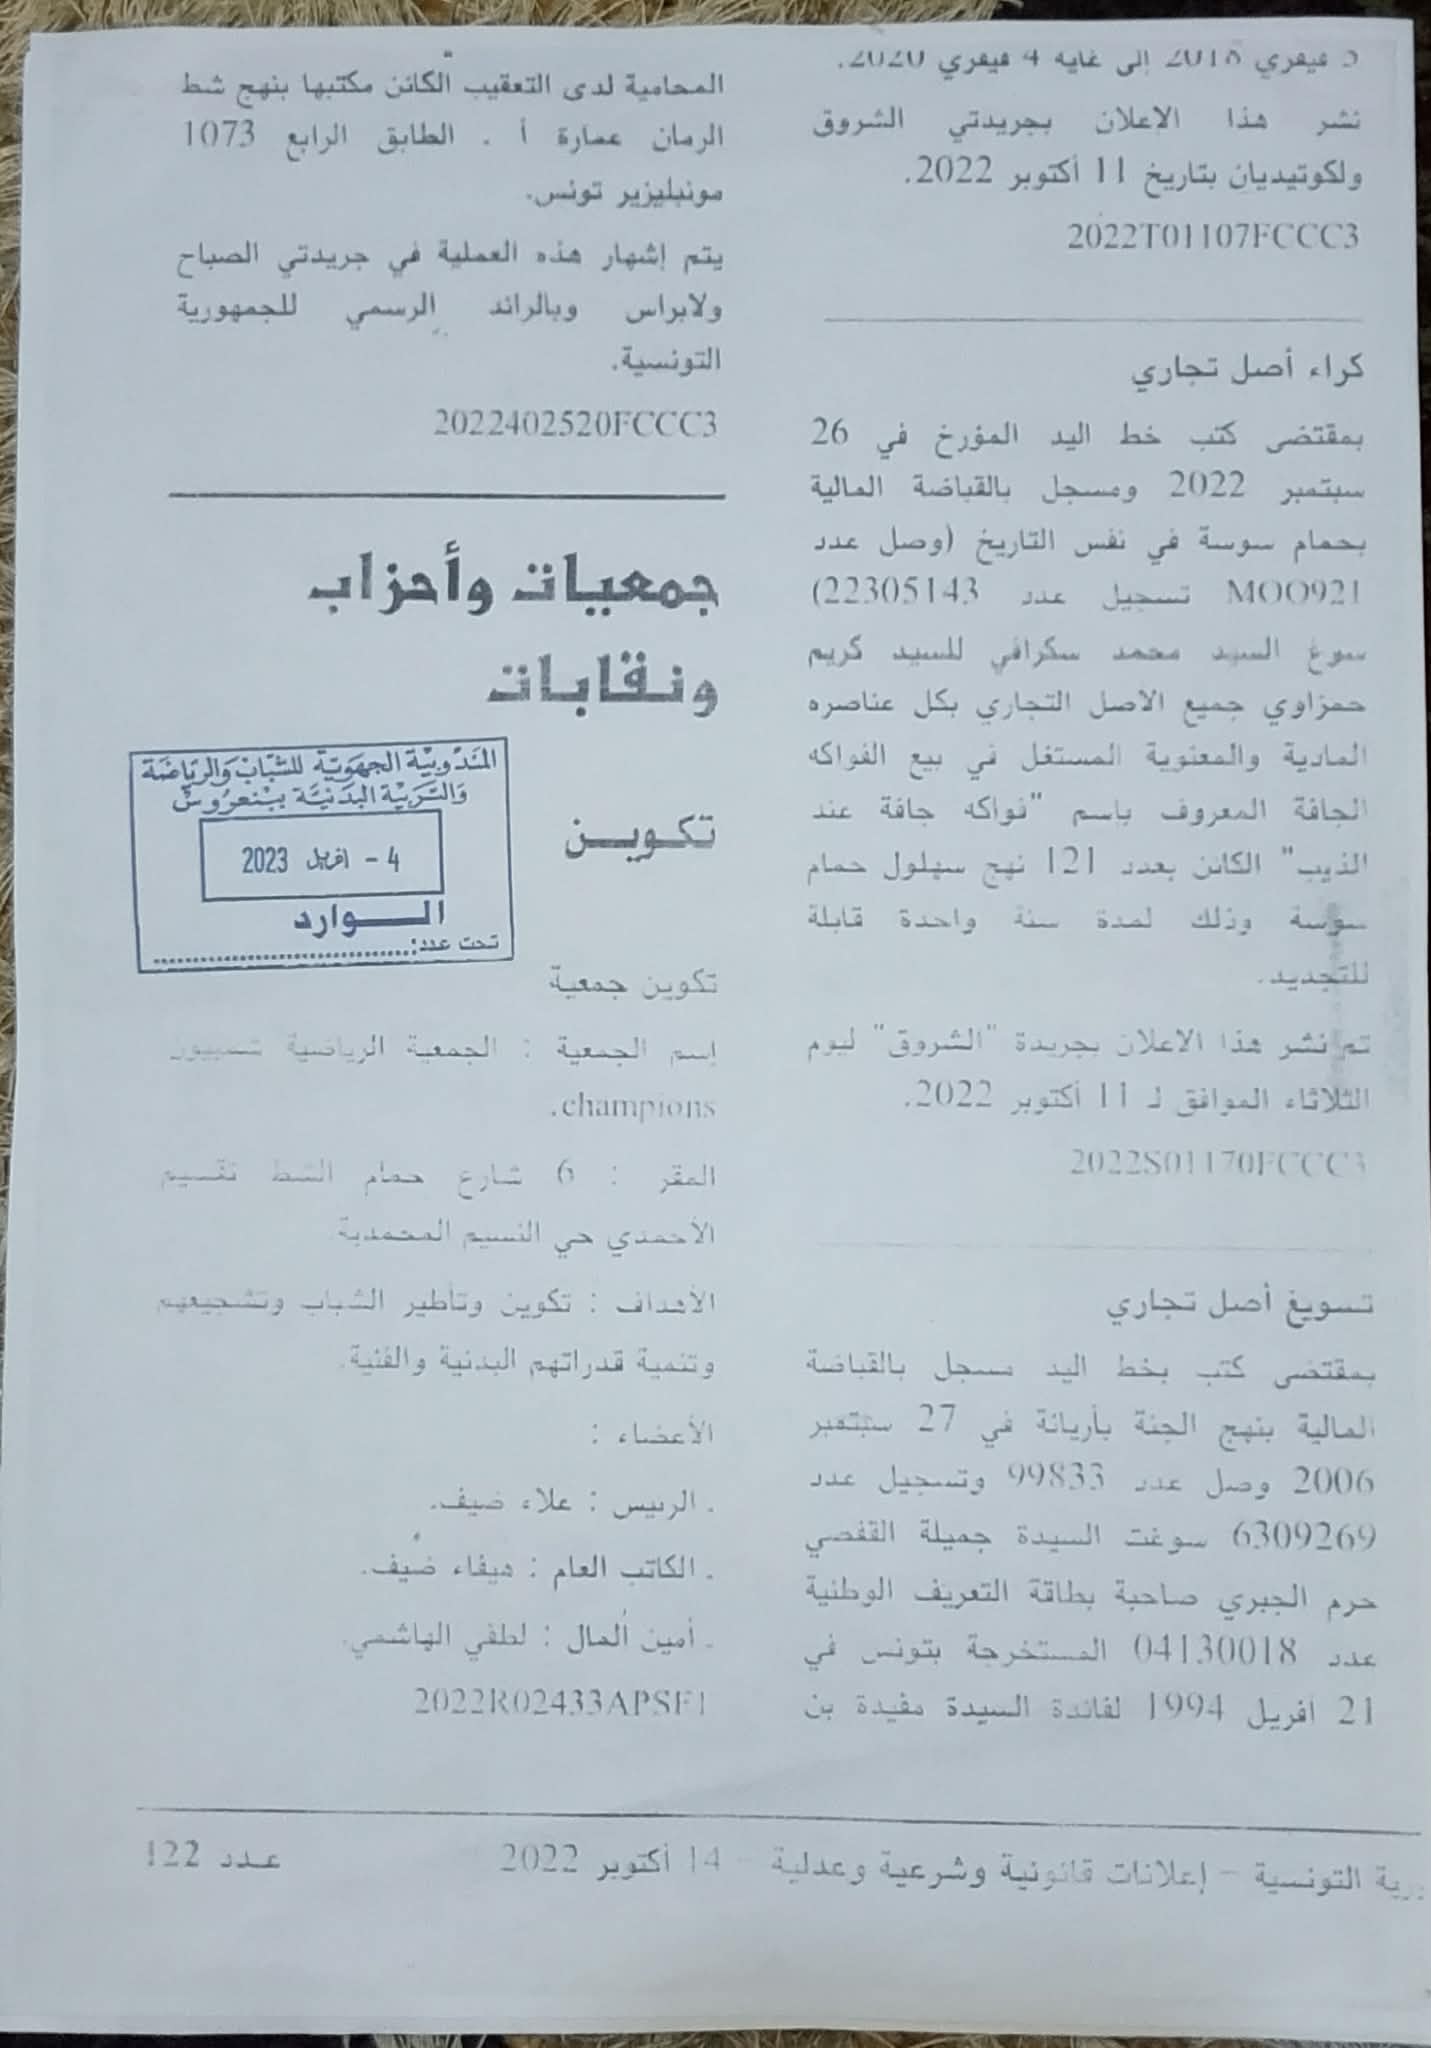 5 فيفري 2018 إلى غاية 4 فيفري 2020.
نشر هذا الإعلان بجريدتي الشروق
ولكوتيديان بتاريخ 11 أكتوبر 2022.
2022T01107FCCC3
كراء أصل تجاري
بمقتضى كتب خط اليد المؤرخ في 26
سبتمبر 2022 ومسجل بالقباضة المالية
بحمام سوسة في نفس التاريخ (وصل عدد
MOO921 تسجيل عدد 22305143)
سوغ السيد محمد سكرافي للسيد كريم
حمزاوي جميع الاصل التجاري بكل عناصره
المادية والمعنوية المستغل في بيع الفواكه
الجافة المعروف باسم "فواكه جافة عند
الذيب" الكائن بعدد 121 نهج سهلول حمام
سوسة وذلك لمدة سنة واحدة قابلة
للتجديد.
تم نشر هذا الاعلان بجريدة "الشروق" ليوم
الثلاثاء الموافق لـ 11 أكتوبر 2022.
2022S01170FCCC3
تسويغ أصل تجاري
بمقتضى كتب بخط اليد مسجل بالقباضة
المالية بنهج الجنة بأريانة في 27 سبتمبر
2006 وصل عدد 99833 وتسجيل عدد
6309269 سوغت السيدة جميلة القفصي
حرم الجبري صاحبة بطاقة التعريف الوطنية
عدد 04130018 المستخرجة بتونس في
21 افريل 1994 لفائدة السيدة مفيدة بن
المحامية لدى التعقيب الكائن مكتبها بنهج شط
الرمان عمارة أ . الطابق الرابع 1073
مونبليزير تونس.
يتم إشهار هذه العملية في جريدتي الصباح
ولابراس وبالرائد الرسمي للجمهورية
التونسية.
2022402520FCCC3
جمعيات وأحزاب
ونقابات
المندوبية الجهوية للشباب والرياضة
والتربية البدنية ببنعروس
4 - افريل 2023
الـــوارد
تحت عدد:................................
تكـويـــن
تكوين جمعية
إسم الجمعية : الجمعية الرياضية شمبيون
champions.
المقر : 6 شارع حمام الشط تقسيم
الأحمدي حي النسيم المحمدية
الأهداف : تكوين وتأطير الشباب وتشجيعهم
وتنمية قدراتهم البدنية والفنية.
الأعضاء :
. الرئيس : علاء ضيف.
. الكاتب العام : هيفاء ضيف.
. أمين المال : لطفي الهاشمي.
2022R02433APSF1
رية التونسية – إعلانات قانونية وشرعية وعدلية – 14 أكتوبر 2022 عـدد 122